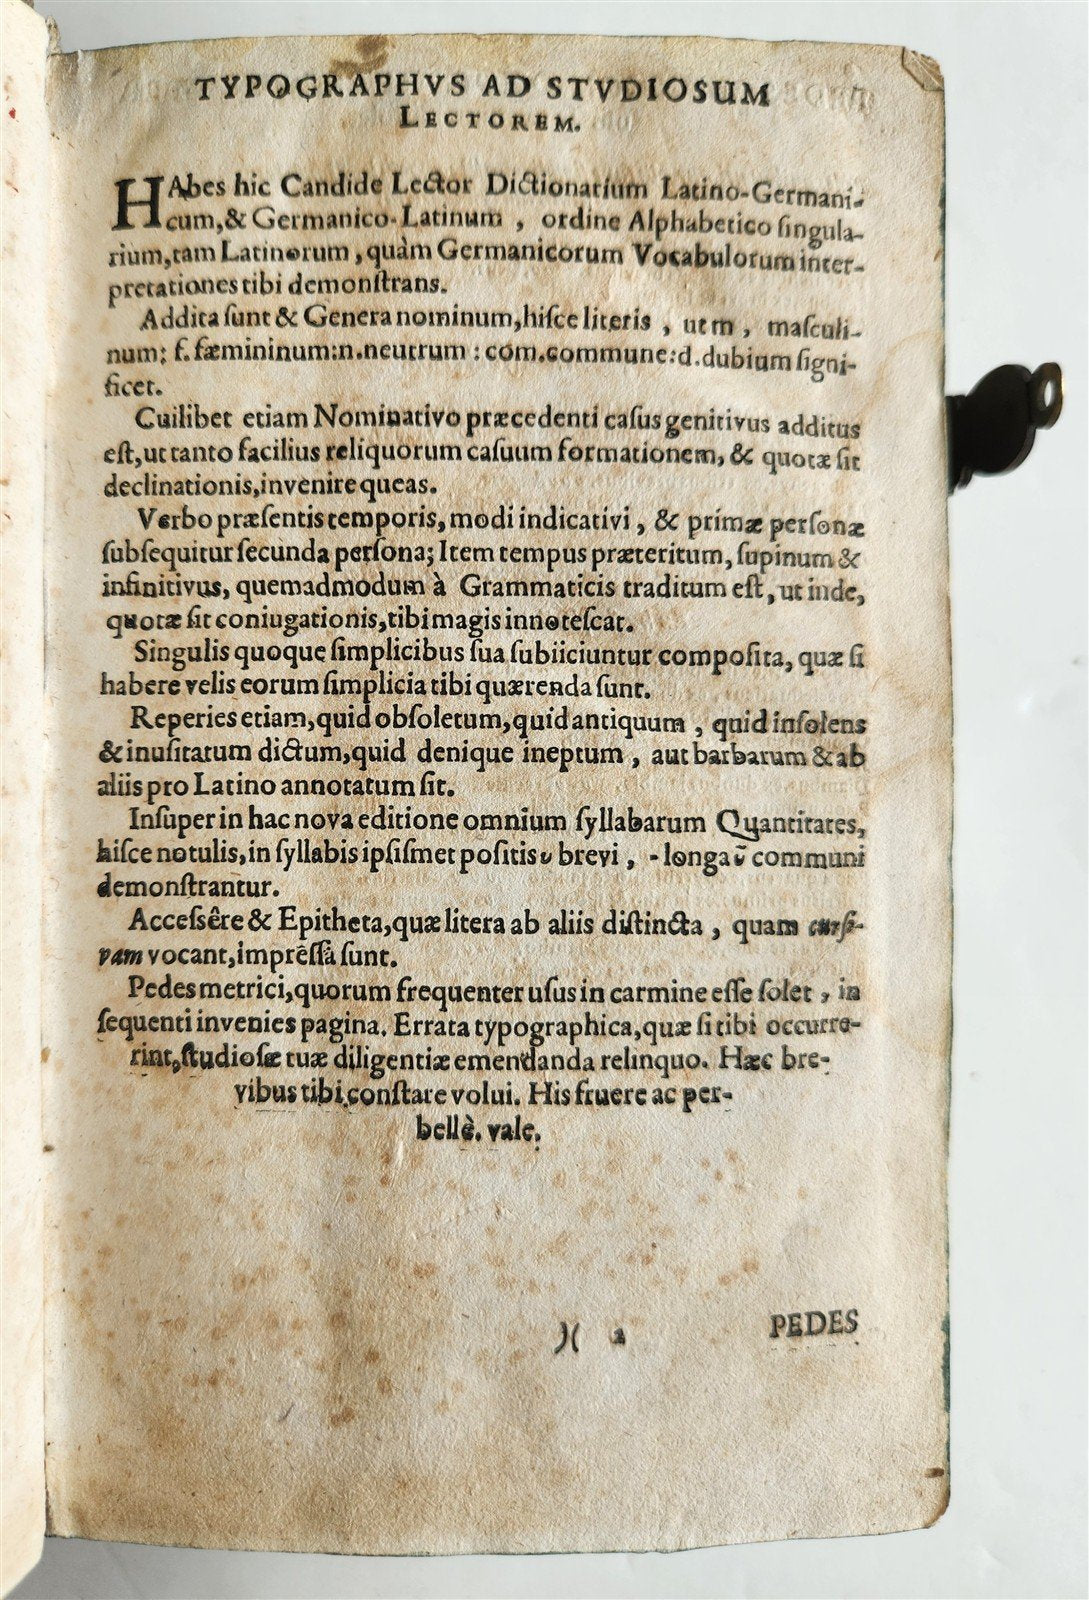 TYPOGRAPHVS AD STVDIOSUM
LECTOREM.
HAbes hic Candide Lector Dictionarium Latino-Germani-
cum, & Germanico-Latinum, ordine Alphabetico ſingula-
rium, tam Latinorum, quàm Germanicorum Vocabulorum inter-
pretationes tibi demonſtrans.
Addita ſunt & Genera nominum, hiſce literis, ut m, maſculi-
num; f. fæmininum: n. neutrum: com. commune: d. dubium ſigni-
ficet.
Cuilibet etiam Nominativo præcedenti caſus genitivus additus
eſt, ut tanto facilius reliquorum caſuum formationem, & quotæ ſit
declinationis, invenire queas.
Verbo præſentis temporis, modi indicativi, & primæ perſonæ
ſubſequitur ſecunda perſona; Item tempus præteritum, ſupinum &
infinitivus, quemadmodum à Grammaticis traditum eſt, ut inde,
quotæ ſit coniugationis, tibi magis innoteſcat.
Singulis quoque ſimplicibus ſua ſubiiciuntur compoſita, quæ ſi
habere velis eorum ſimplicia tibi quærenda ſunt.
Reperies etiam, quid obſoletum, quid antiquum, quid inſolens
& inuſitatum dictum, quid denique ineptum, aut barbarum & ab
aliis pro Latino annotatum ſit.
Inſuper in hac nova editione omnium ſyllabarum Quantitates,
hiſce notulis, in ſyllabis ipſiſmet poſitis ᴗ brevi, - longa ῡ communi
demonſtrantur.
Acceſsêre & Epitheta, quæ litera ab aliis diſtincta, quam curſi-
vam vocant, impreſſa ſunt.
Pedes metrici, quorum frequenter uſus in carmine eſſe ſolet, in
ſequenti invenies pagina. Errata typographica, quæ ſi tibi occurre-
rint, ſtudioſæ tuæ diligentiæ emendanda relinquo. Hæc bre-
vibus tibi conſtare volui. His fruere ac per-
bellè. vale.
)( 2 PEDES